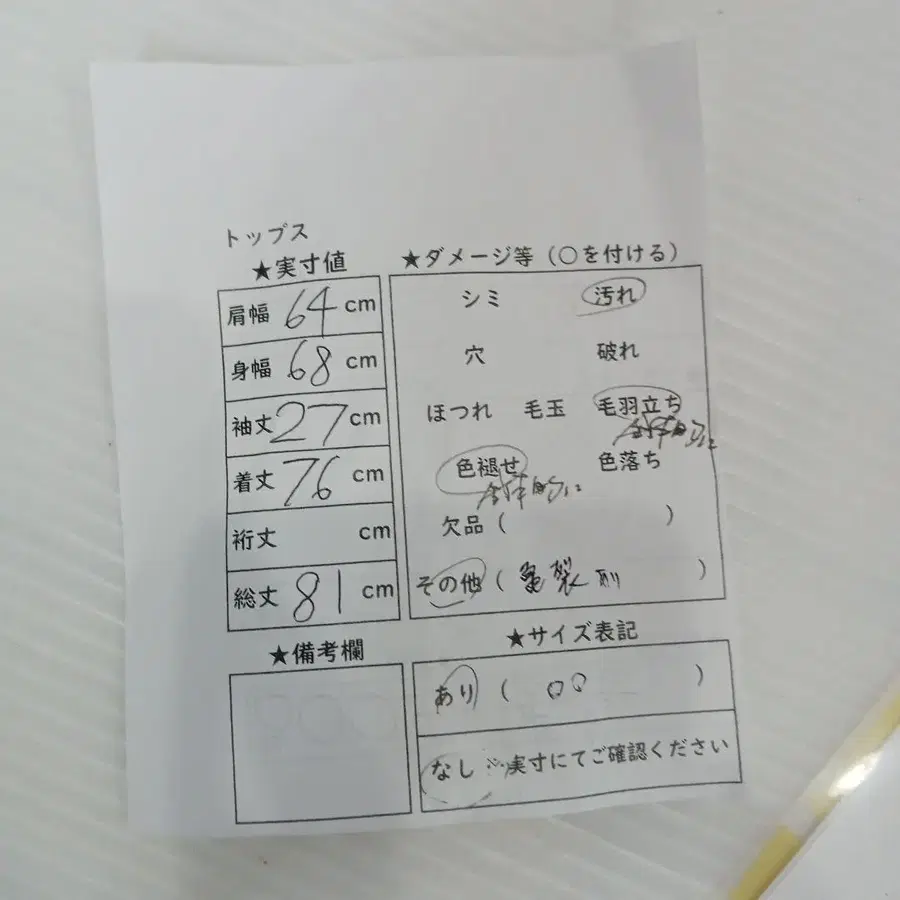 トップス
★実寸値
肩幅 64 cm
身幅 68 cm
袖丈 27 cm
着丈 76 cm
裄丈 cm
総丈 81 cm
★備考欄
★ダメージ等（○を付ける）
シミ 汚れ
穴 破れ
ほつれ 毛玉 毛羽立ち
全体的に
色褪せ 色落ち
全体的に
欠品（ ）
その他（ 亀裂あり ）
★サイズ表記
あり（ 00 ）
なし ※実寸にてご確認ください